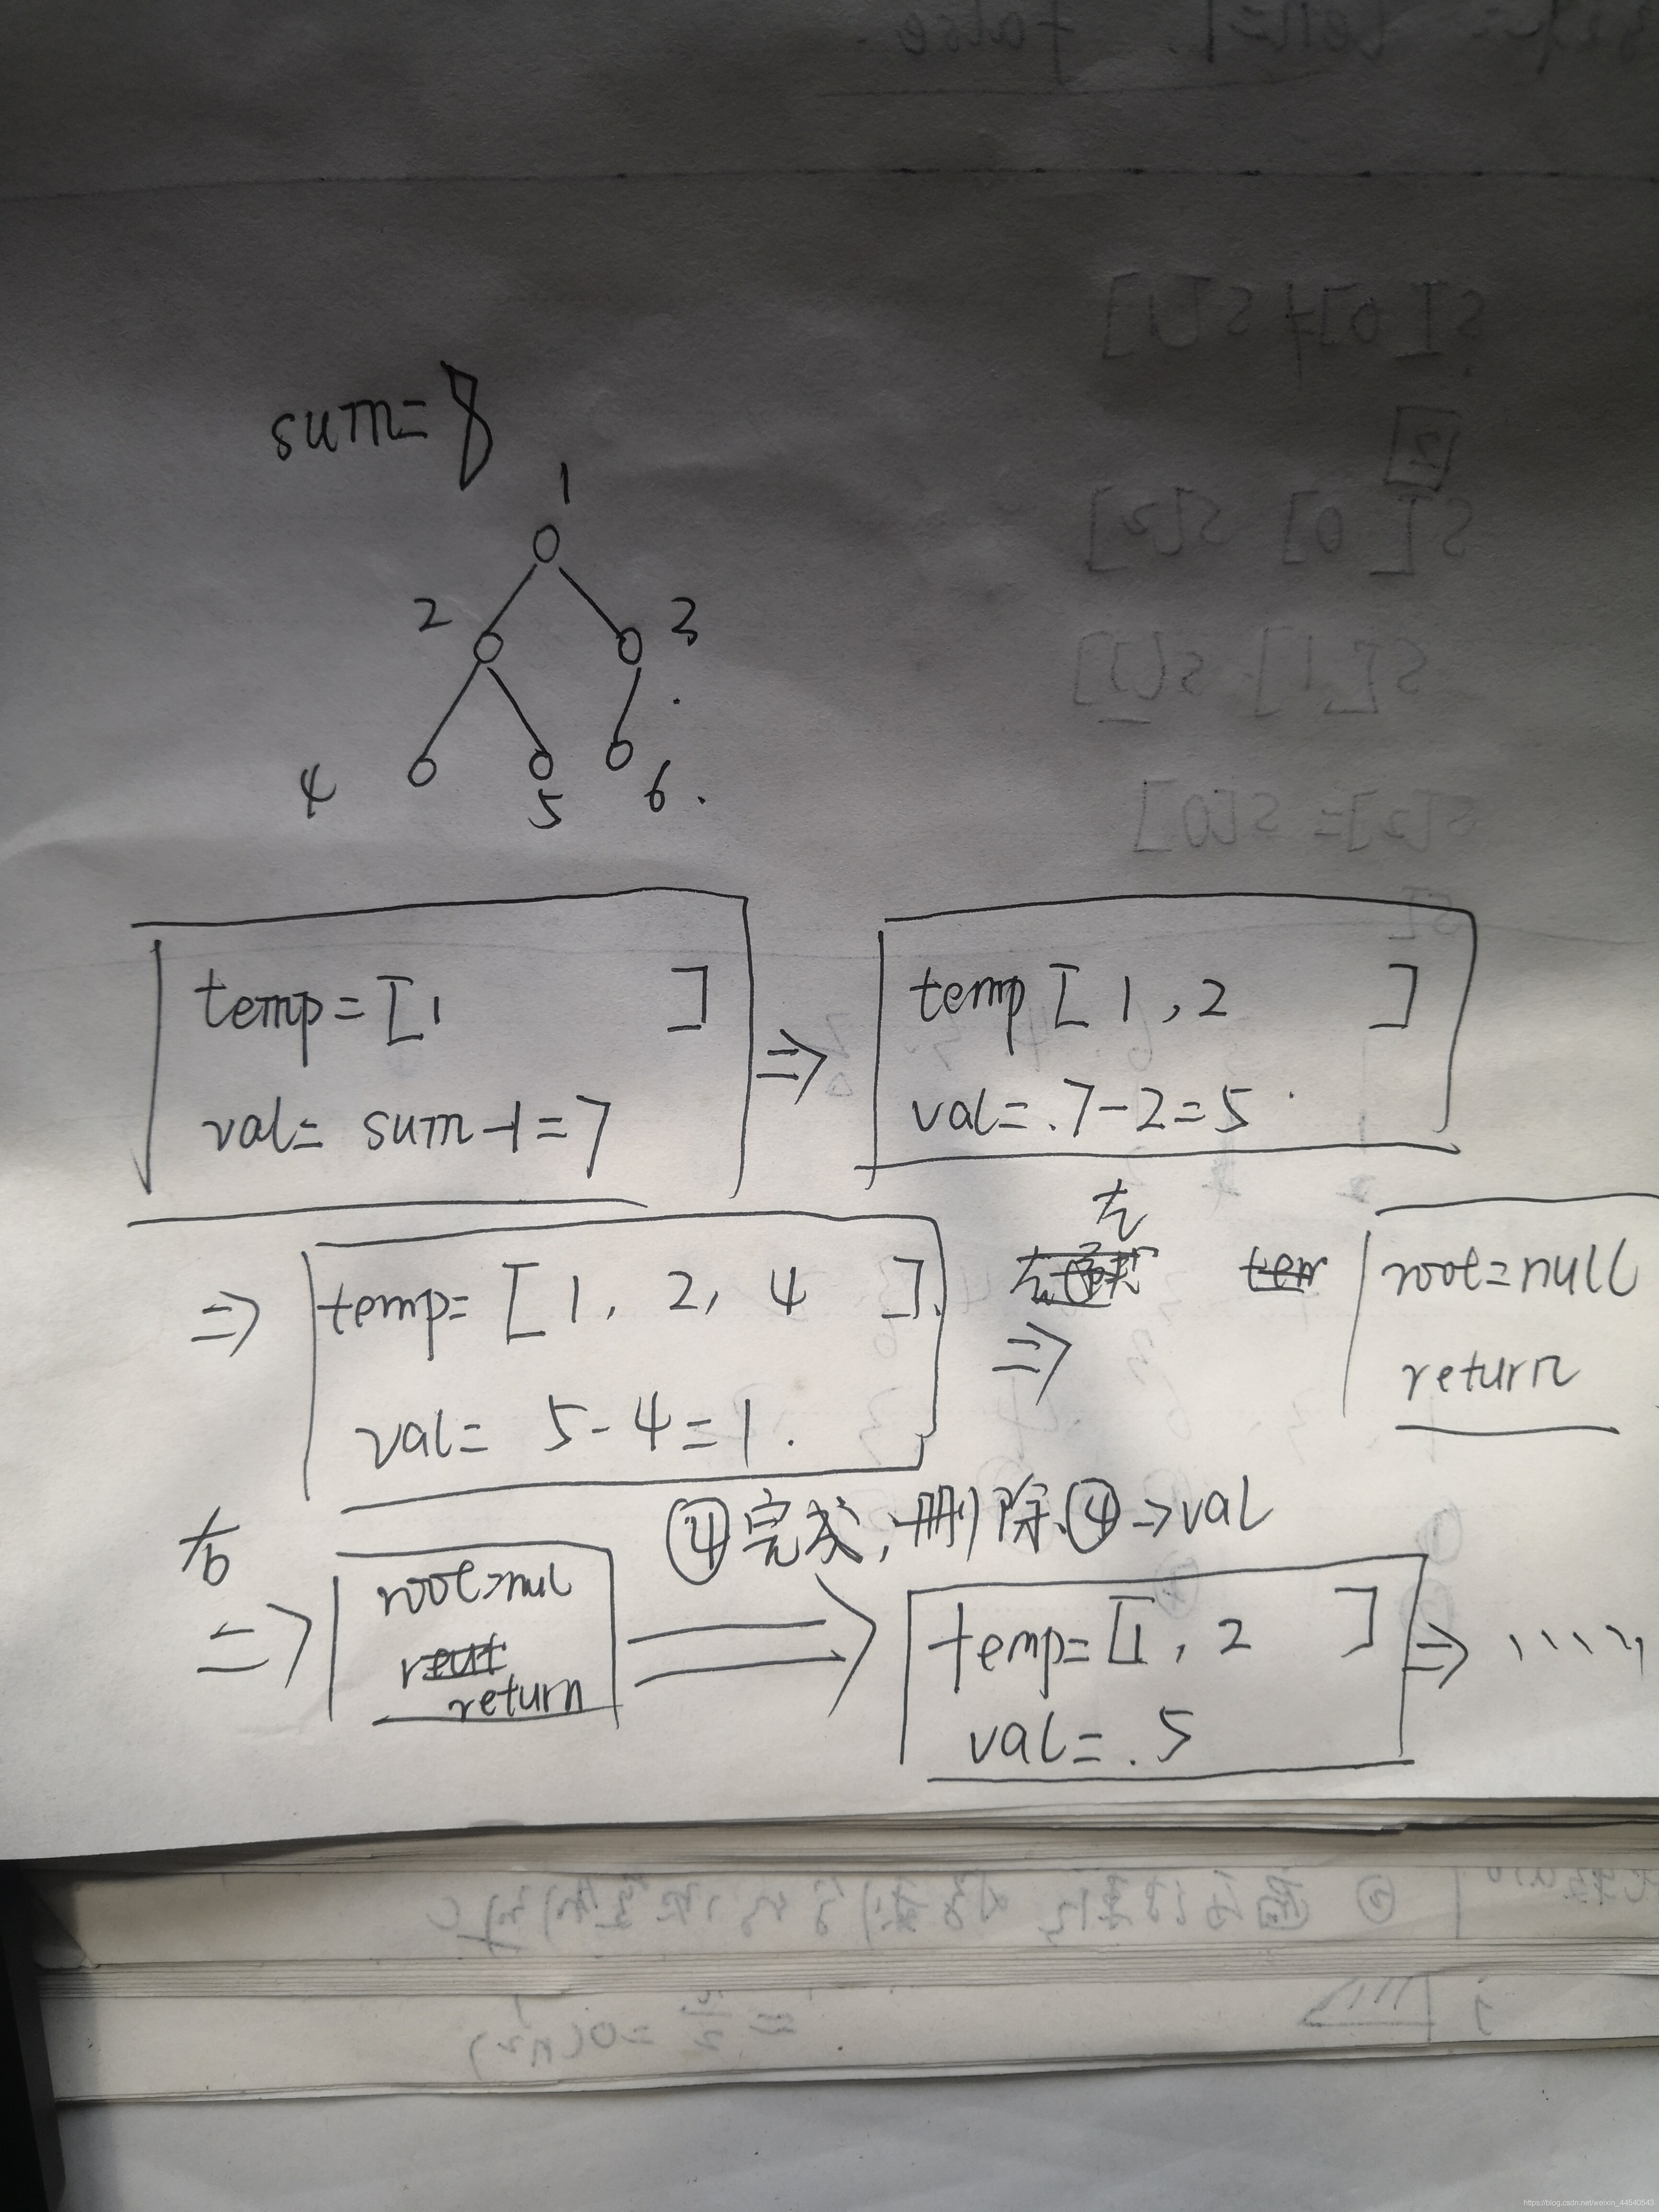 sum=8
1
2 3
4 5 6.
temp=[1 ]
val= sum-1=7
⇒
temp[1,2 ]
val=.7-2=5
⇒ temp=[1,2,4 ].
val= 5-4=1.
左
⇒
root=null
return
右
⇒
root=nul
return
④完成,删除④→val
temp=[1,2 ]
val=.5
⇒ .....
https://blog.csdn.net/weixin_44540543